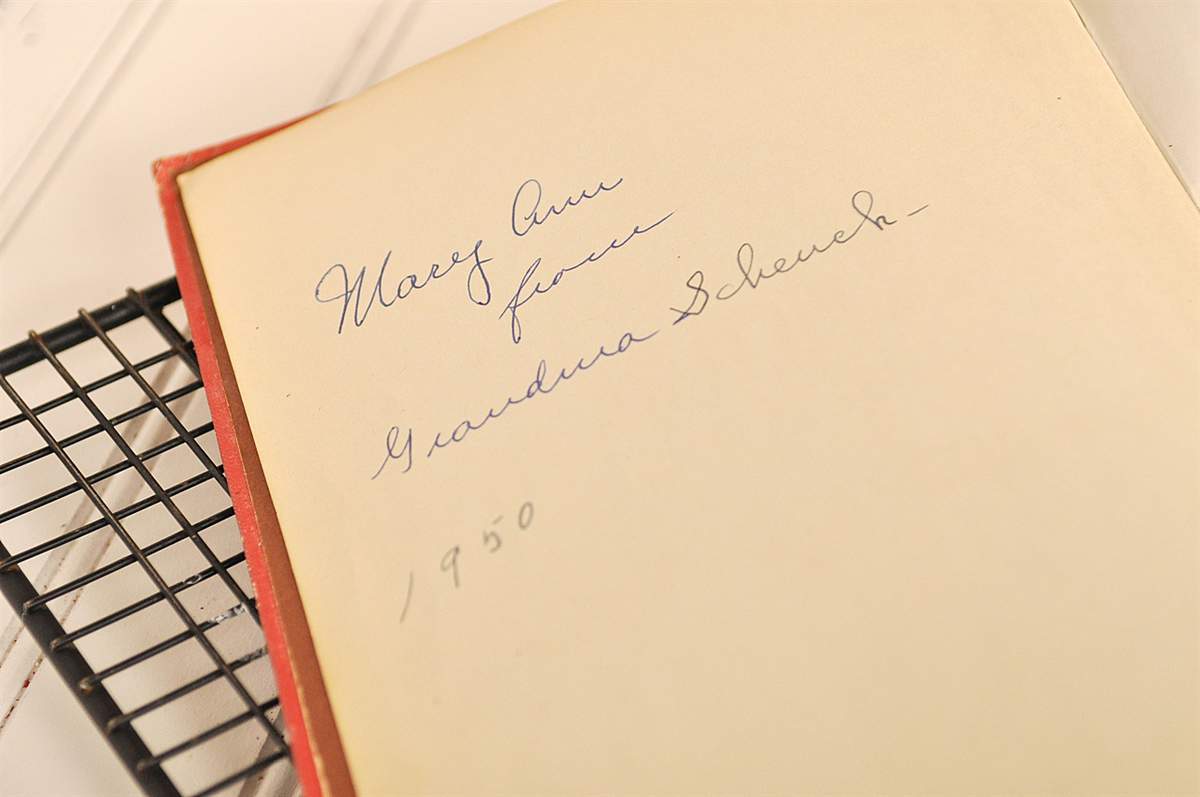 Mary Ann
from
Grandma Schenck -
1950